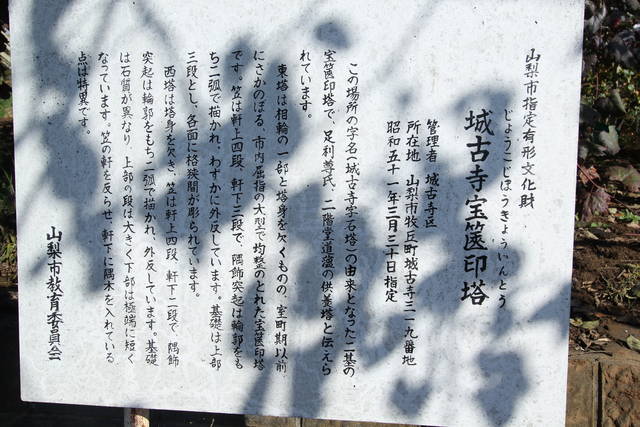 山梨市指定有形文化財
じょうこじほうきょういんとう
城古寺宝篋印塔
管理者 城古寺区
所在地 山梨市牧丘町城古寺三一九番地
昭和五十一年三月三十日指定
この場所の字名(城古寺字石塔)の由来となった二基の
宝篋印塔で、足利尊氏、二階堂道蘊の供養塔と伝えら
れています。
東塔は相輪の一部と塔身を欠くものの、室町期以前
にさかのぼる、市内屈指の大型で均整のとれた宝篋印塔
です。笠は軒上四段、軒下三段で、隅飾突起は輪郭をも
ち二弧で描かれ、わずかに外反しています。基礎は上部
三段とし、各面に格狭間が彫られています。
西塔は塔身を欠き、笠は軒上四段、軒下二段で、隅飾
突起は輪郭をもち二弧で描かれ、外反しています。基礎
は石質が異なり、上部の段は大きく下部は極端に短く
なっています。笠の軒を反らせ、軒下に隅木を入れている
点は特異です。
山梨市教育委員会